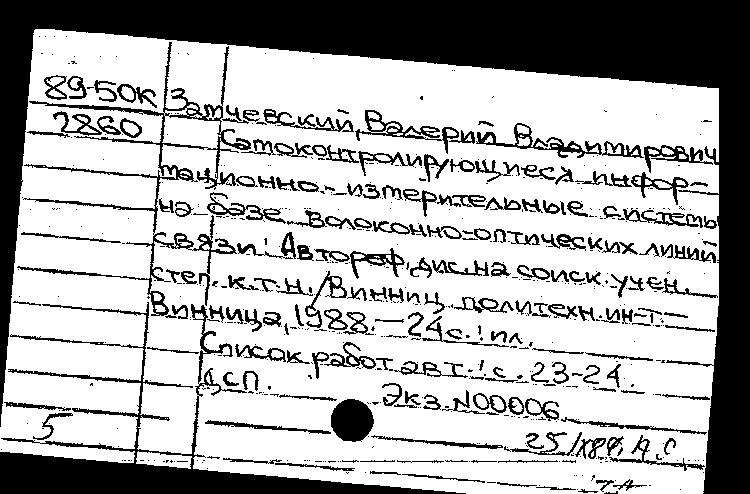 89-50К
2860
Затчевский, Валерий Владимирович
Самоконтролирующиеся инфор-
мационно-измерительные системы
на базе волоконно-оптических линий
связи: Автореф. дис. на соиск. учен.
степ. к.т.н. / Винниц. политехн. ин-т. -
Винница, 1988. - 24 с.: ил.
Список работ авт.: с. 23-24.
ДСП.
Экз. N00006.
5